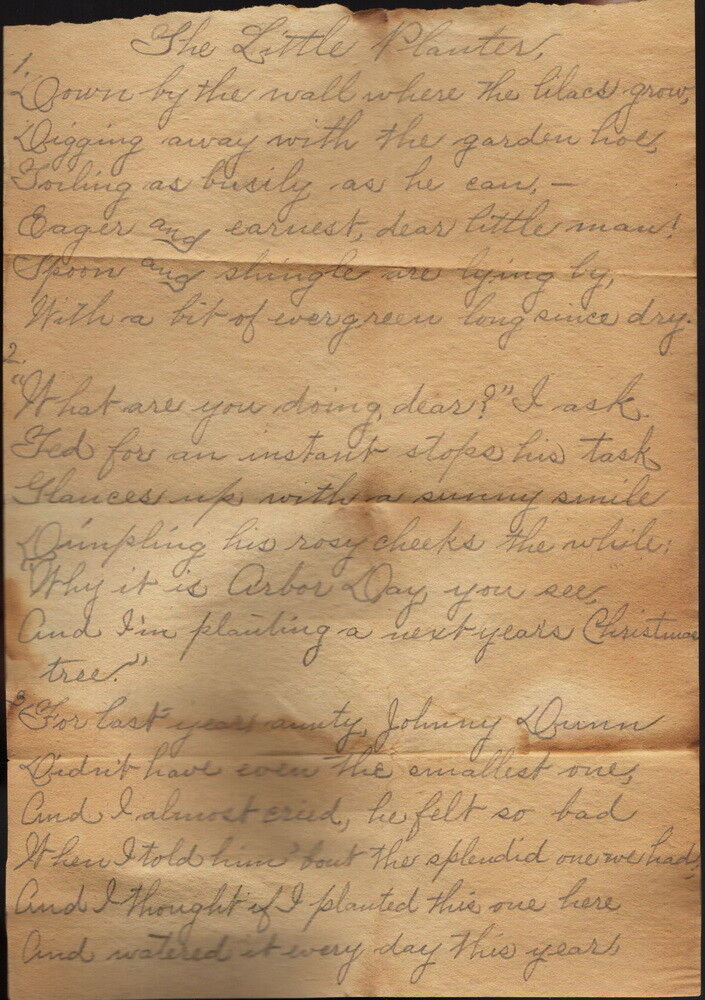 The Little Planter.
1.
Down by the wall where the lilacs grow,
Digging away with the garden hoe,
Toiling as busily as he can, —
Eager and earnest, dear little man!
Spoon and shingle are lying by,
With a bit of evergreen long since dry.
2.
"What are you doing, dear?" I ask.
Ted for an instant stops his task
Glances up with a sunny smile
Dimpling his rosy cheeks the while:
"Why it is Arbor Day, you see,
And I'm planting a next year's Christmas
tree."
3
"For last year aunty, Johnny Dunn
Didn't have even the smallest one,
And I almost cried, he felt so bad
When I told him 'bout the splendid one we had,
And I thought if I planted this one here
And watered it every day this year